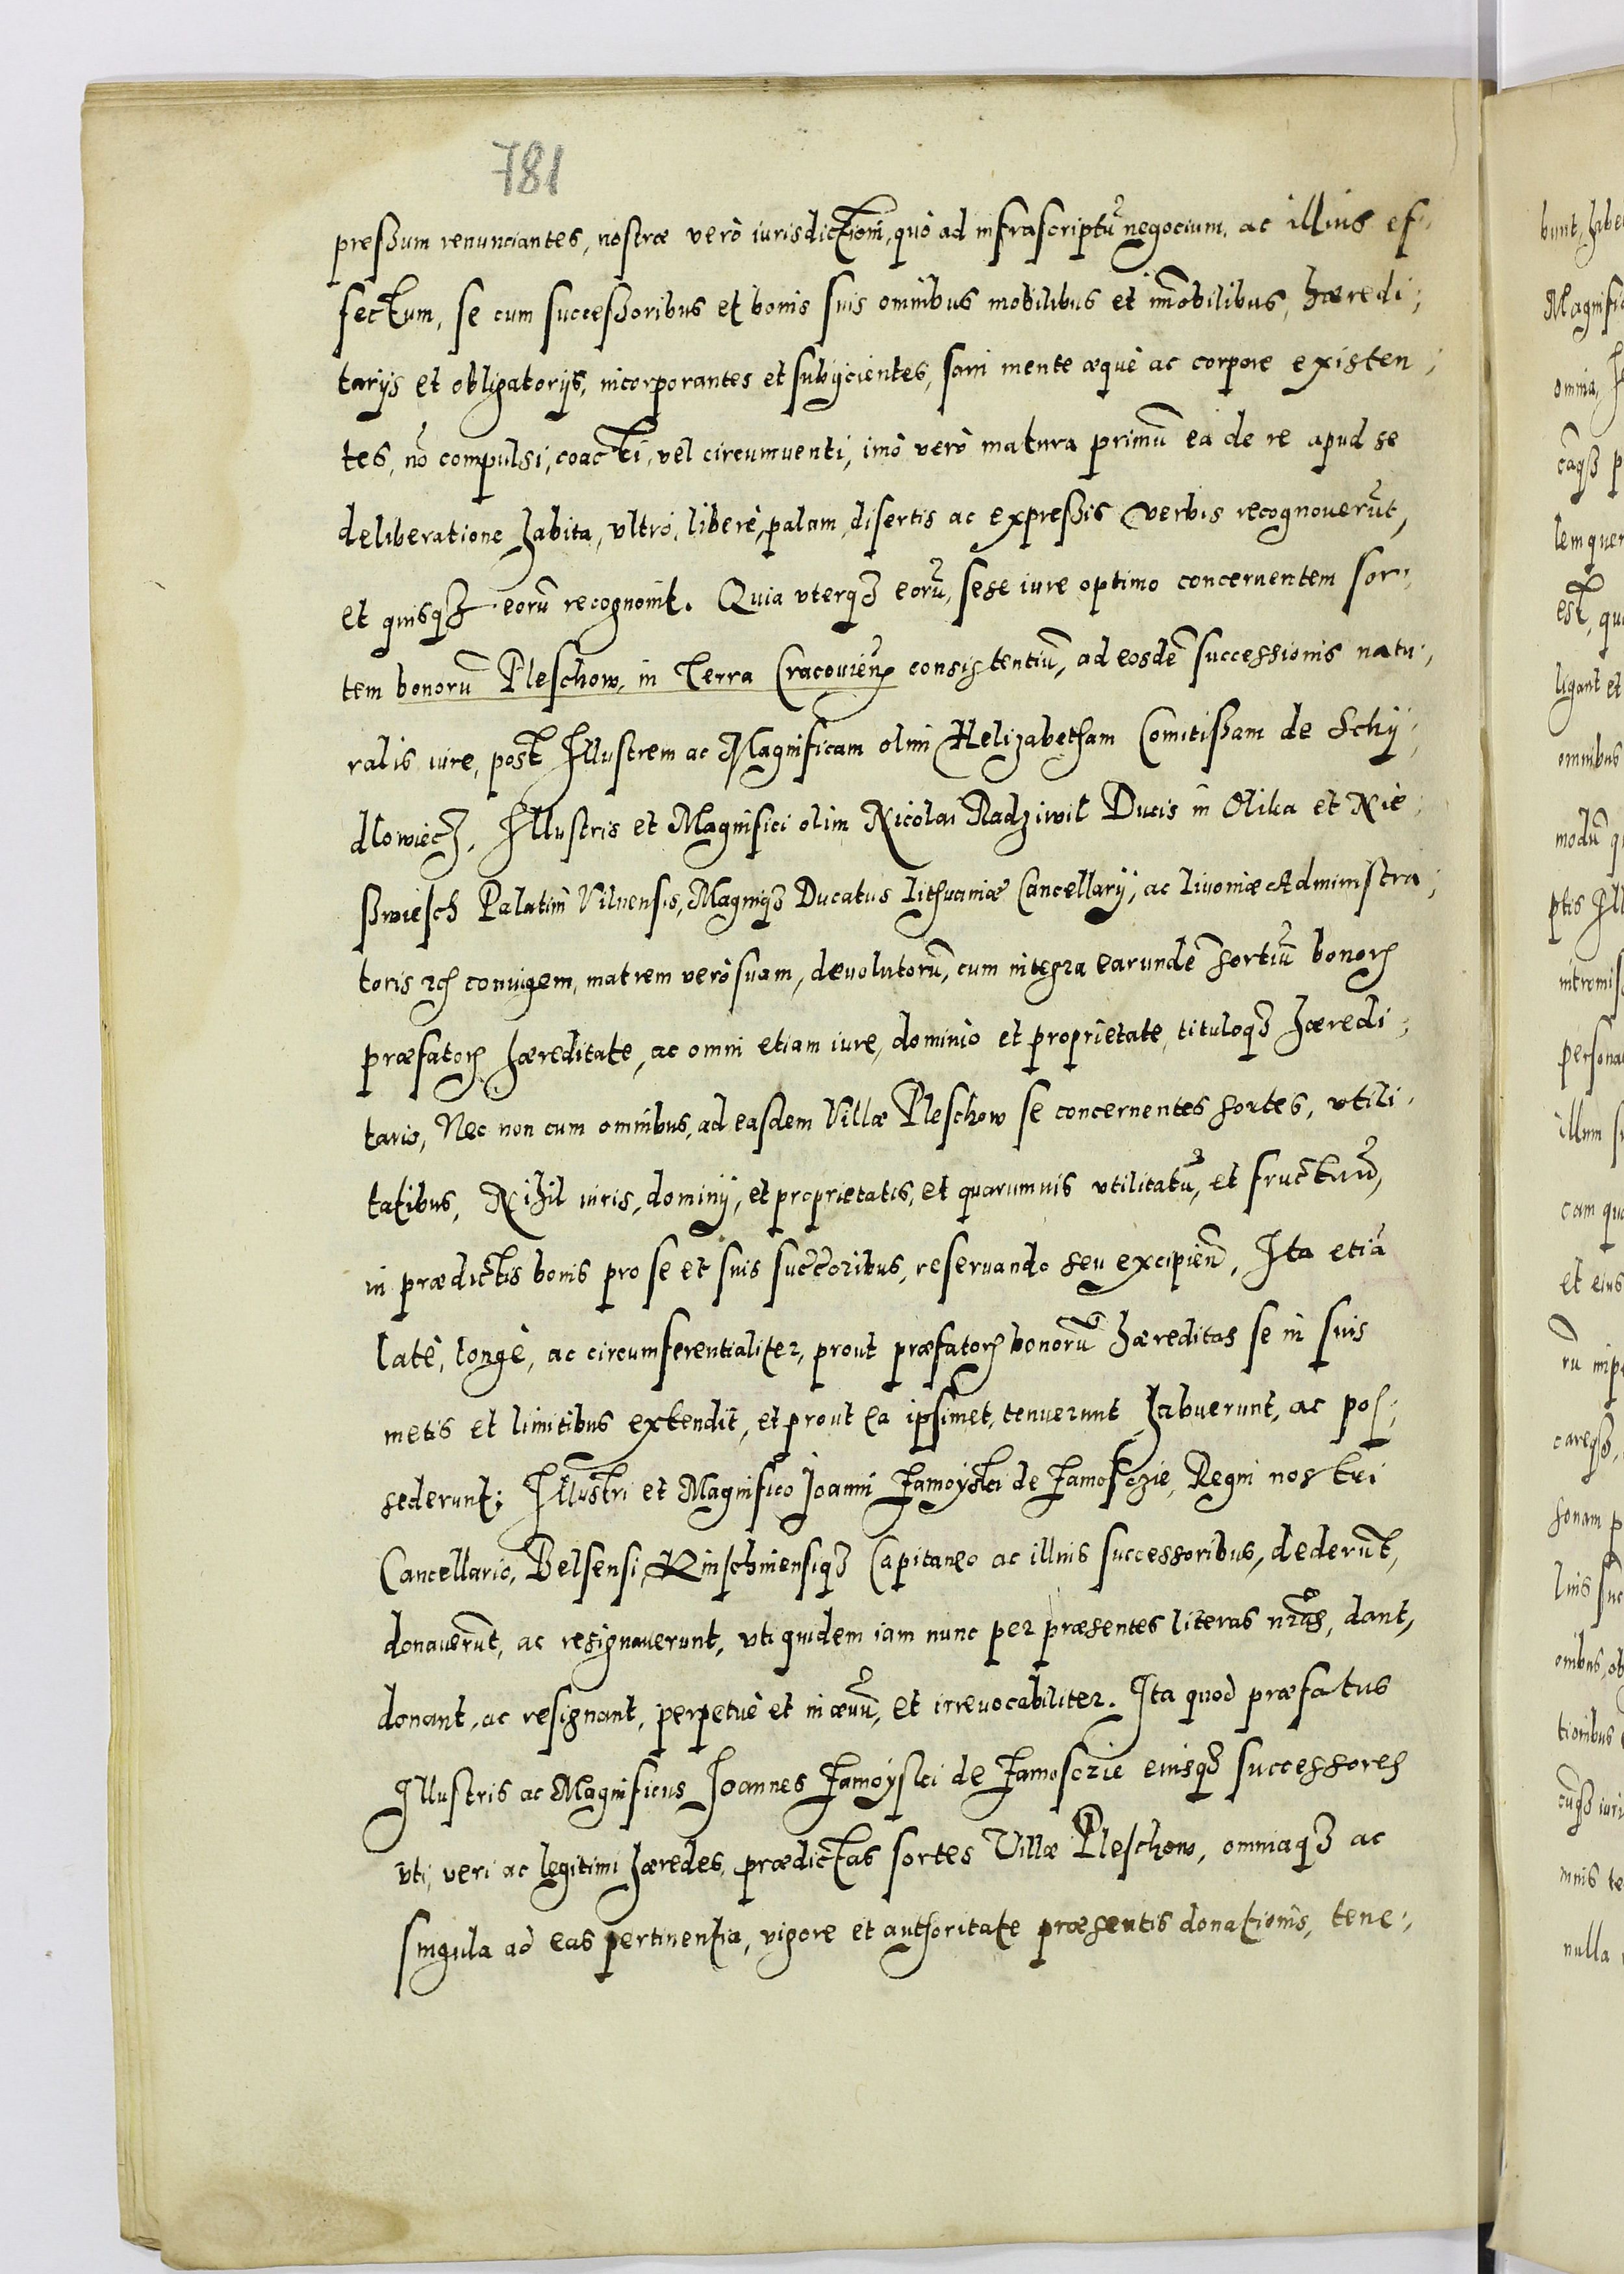 781
preßum renunciantes, nostræ verò iurisdictioni, quò ad infrascriptũ negocium, ac illius ef,
fectum, se cum succeßoribus et bonis suis omnibus mobilibus et im̃obilibus, hæredi,
tarijs et obligatorijs, incorporantes et subijcientes, sani mente æquè ac corpore existen,
tes, nõ compulsi, coacti, vel circumuenti, imò verò matura primũ ea de re apud se
deliberatione habita, vltrò, liberè, palam, disertis ac expreßis verbis recognouerũt,
et quisqȝ eorũ recognouit. Quia vterqȝ eorũ, sese iure optimo concernentem sor,
tem bonorũ Pleschow, in Terra Cracouieñ consistentiũ, ad eosdẽ successionis natu,
ralis iure, post Illustrem ac Magnificam olim Helizabetham Comitißam de Schy,
dlowiecz, Illustris et Magnifici olim Nicolai Radziwil Ducis in Olika et Nie,
ßwiesch Palatini Vilnensis, Magniqȝ Ducatus Lithuaniæ Cancellarij, ac Liuoniæ Administra,
toris ꝛc̃ coniugem, matrem verò suam, deuolutorũ, cum integra earundẽ sortiũ bonorꝫ
præfatorꝫ hæreditate, ac omni etiam iure, dominio et proprietate, tituloqȝ hæredi,
tario, Nec non cum omnibus, ad easdem Villæ Pleschow se concernentes sortes, vtili,
tatibus, Nihil iuris, dominij, et proprietatis, et quarumuis vtilitatũ, et fructuũ,
in prædictis bonis pro se et suis succ̃oribus, reseruando seu excipieñ, Ita etiã
latè, longè, ac circumferentialiter, prout præfatorꝫ bonorũ hæreditas se in suis
metis et limitibus extendit, et prout ea ipsimet, tenuerunt habuerunt, ac pos,
sederunt; Illustri et Magnifico Joanni Zamoyski de Zamosczie, Regni nostri
Cancellario, Belsensi, Knischinensiqȝ Capitaneo ac illius successoribus, dederũt,
donauerũt, ac resignauerunt, vti quidem iam nunc per præsentes literas nr̃as, dant,
donant, ac resignant, perpetuè et in æuũ, et irreuocabiliter. Ita quod præfatus
Illustris ac Magnificus Joannes Zamoyski de Zamosczie eiusqȝ successores
vti, veri ac legitimi hæredes, prædictas sortes Villæ Pleschow, omniaqȝ ac
singula ad eas pertinentia, vigore et authoritate præsentis donationis, tene,